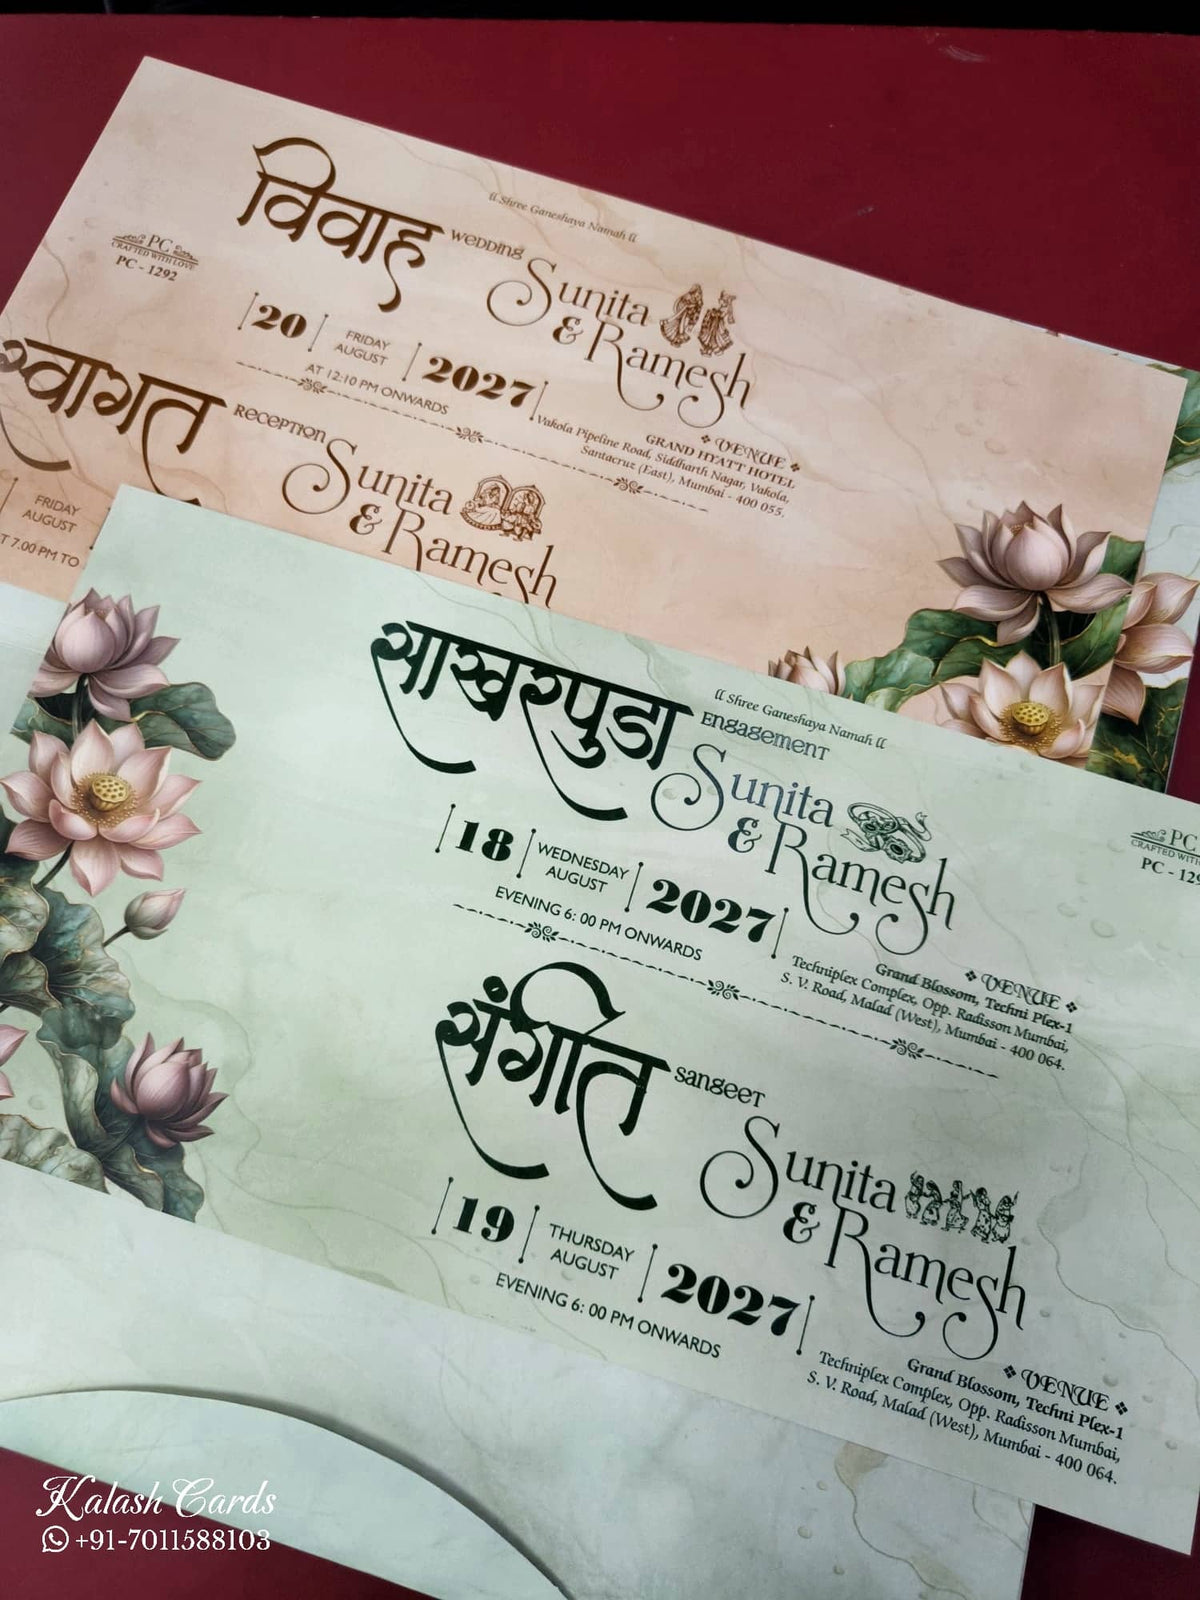 ll Shree Ganeshaya Namah ll
विवाह
WEDDING
Sunita
& Ramesh
PC
CRAFTED WITH LOVE
PC - 1292
20
FRIDAY
AUGUST
2027
AT 12:10 PM ONWARDS
VENUE
GRAND HYATT HOTEL
Vakola Pipeline Road, Siddharth Nagar, Vakola,
Santacruz (East), Mumbai - 400 055.
स्वागत
RECEPTION
Sunita
& Ramesh
FRIDAY
AUGUST
7.00 PM TO
ll Shree Ganeshaya Namah ll
साखरपुडा
ENGAGEMENT
Sunita
& Ramesh
PC
CRAFTED WITH
18
WEDNESDAY
AUGUST
2027
EVENING 6: 00 PM ONWARDS
VENUE
Grand Blossom, Techni Plex-1
Techniplex Complex, Opp. Radisson Mumbai,
S. V. Road, Malad (West), Mumbai - 400 064.
संगीत
SANGEET
Sunita
& Ramesh
19
THURSDAY
AUGUST
2027
EVENING 6: 00 PM ONWARDS
VENUE
Grand Blossom, Techni Plex-1
Techniplex Complex, Opp. Radisson Mumbai,
S. V. Road, Malad (West), Mumbai - 400 064.
Kalash Cards
+91-7011588103